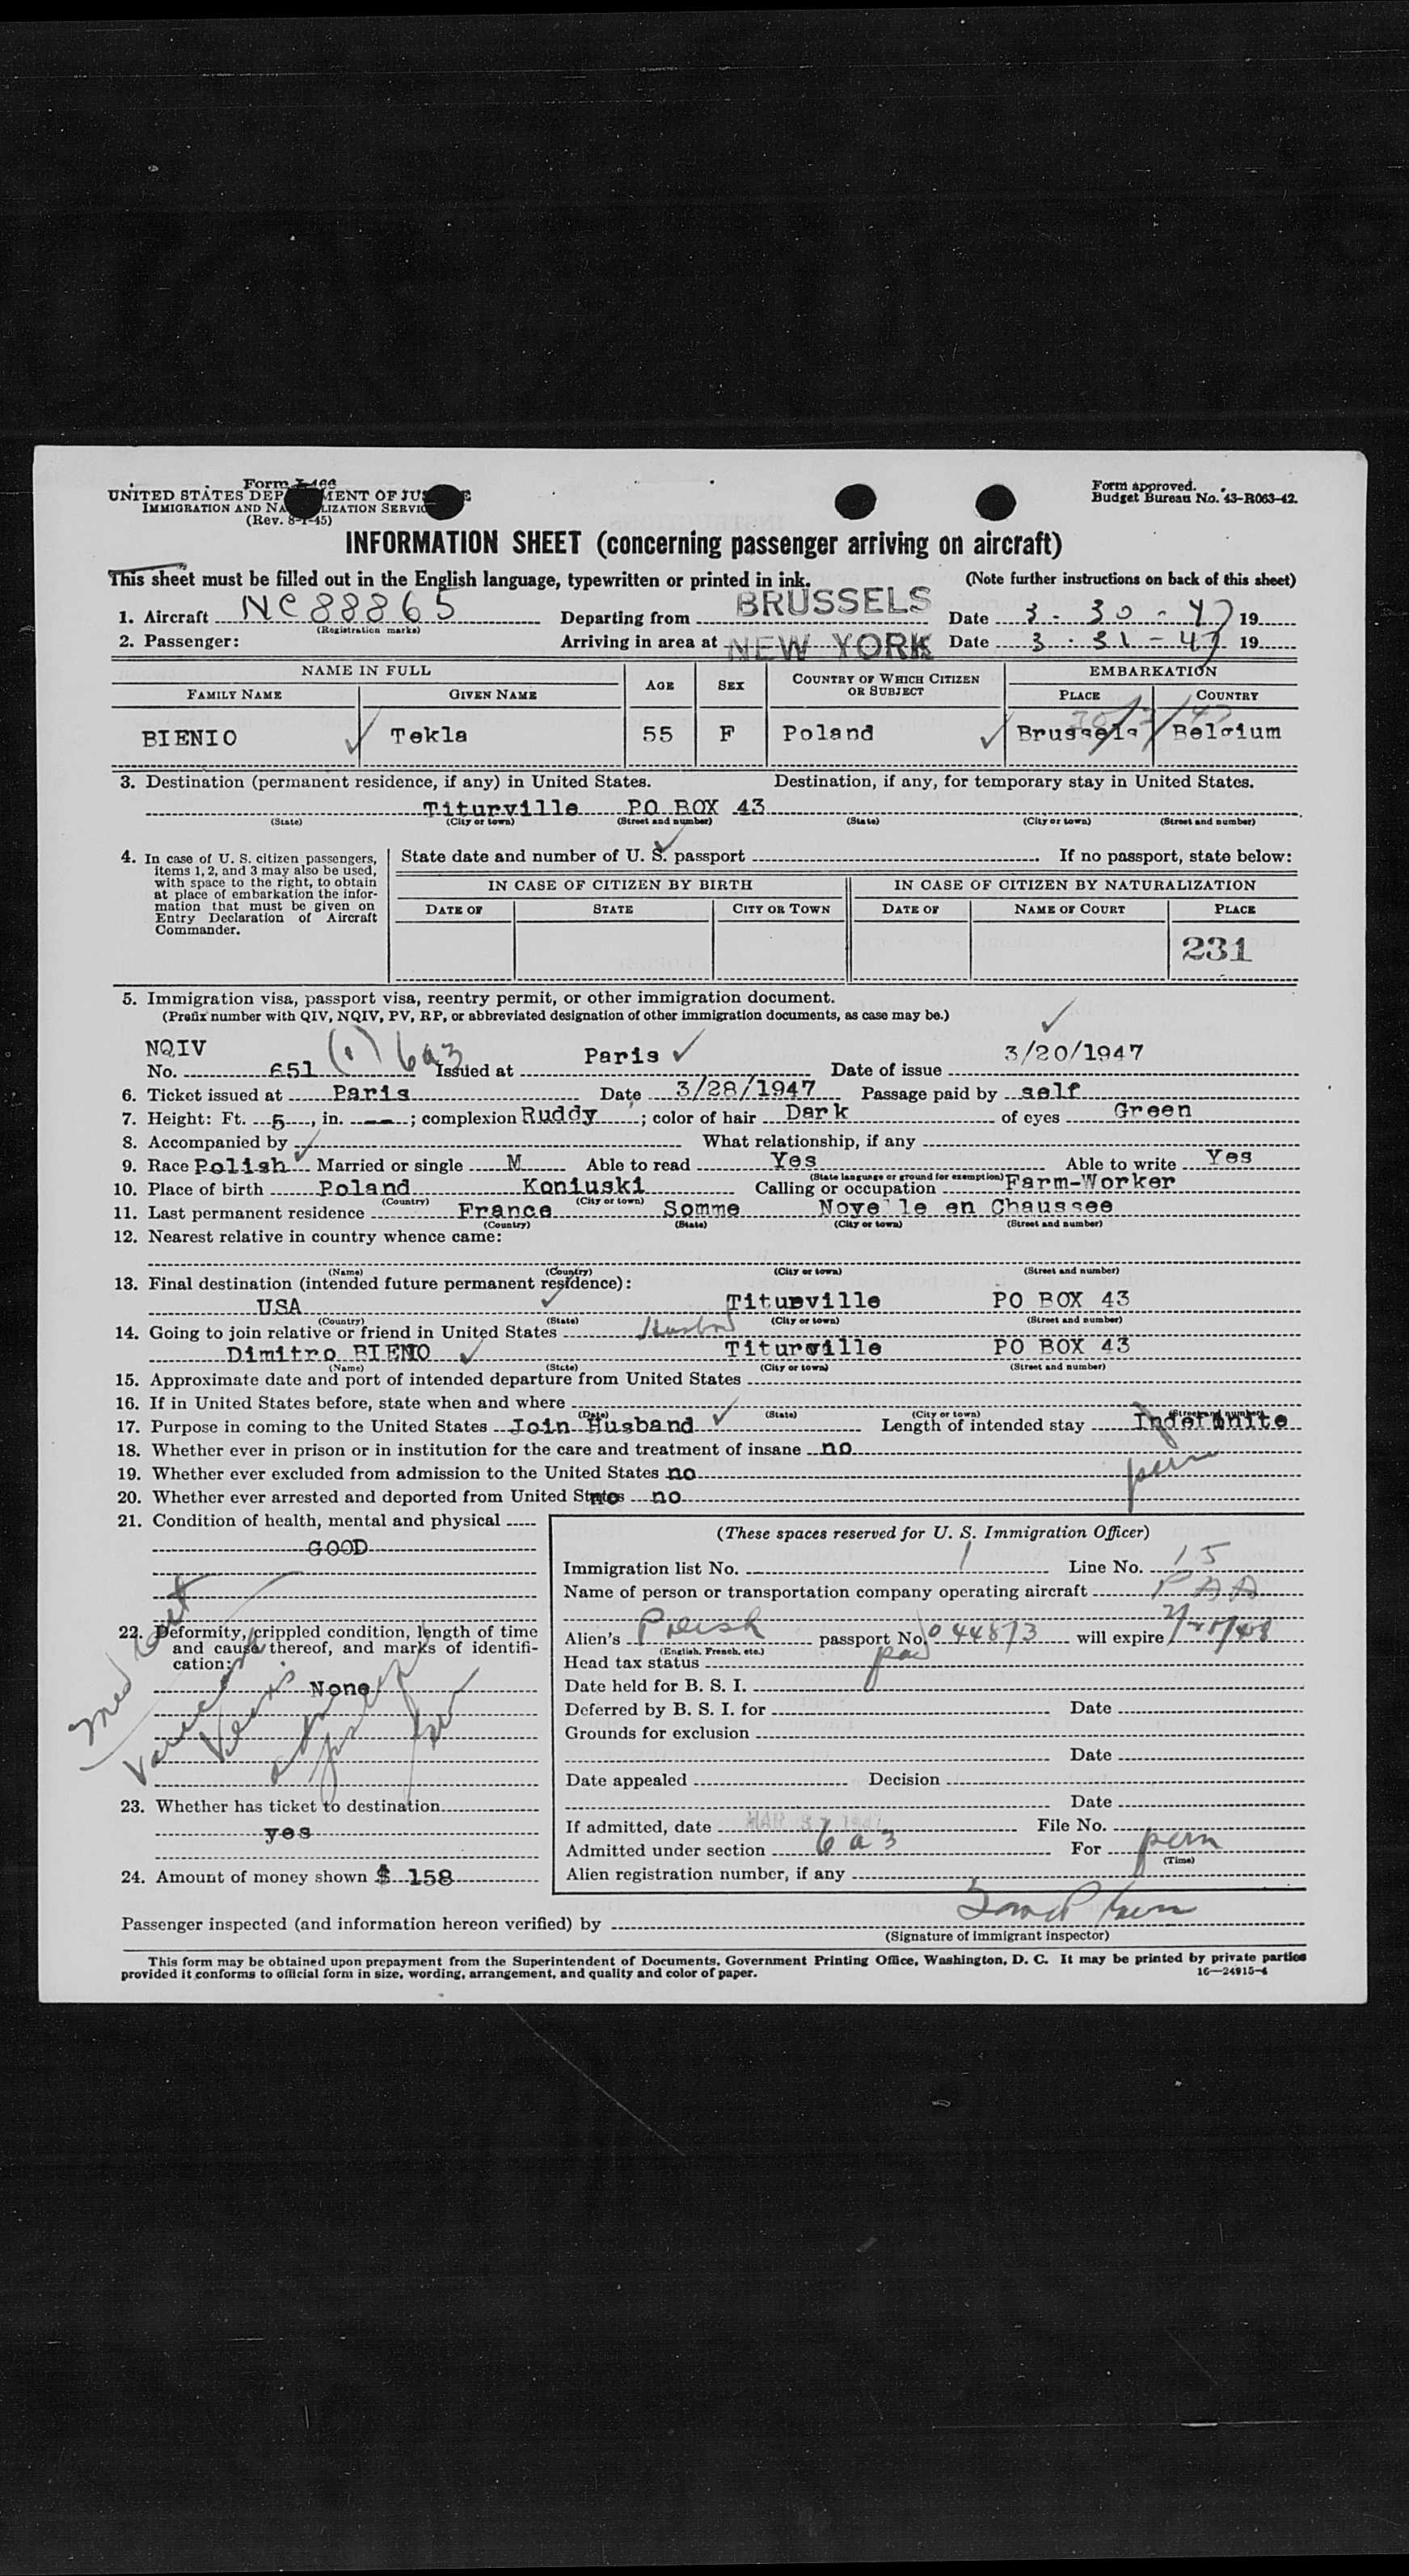 Form I-466
UNITED STATES DEPARTMENT OF JUSTICE
IMMIGRATION AND NATURALIZATION SERVICE
(Rev. 8-1-45)
Form approved.
Budget Bureau No. 43-R063-42.
INFORMATION SHEET (concerning passenger arriving on aircraft)
This sheet must be filled out in the English language, typewritten or printed in ink. (Note further instructions on back of this sheet)
1. Aircraft NC88865 Departing from BRUSSELS Date 3-30-47 19
(Registration marks)
2. Passenger: Arriving in area at NEW YORK Date 3-31-47 19
NAME IN FULL AGE SEX COUNTRY OF WHICH CITIZEN OR SUBJECT EMBARKATION
FAMILY NAME GIVEN NAME PLACE COUNTRY
BIENIO Tekla 55 F Poland Brussels Belgium
3. Destination (permanent residence, if any) in United States. Destination, if any, for temporary stay in United States.
Titurville PO BOX 43
(State) (City or town) (Street and number) (State) (City or town) (Street and number)
4. In case of U. S. citizen passengers, items 1, 2, and 3 may also be used, with space to the right, to obtain at place of embarkation the information that must be given on Entry Declaration of Aircraft Commander.
State date and number of U. S. passport If no passport, state below:
IN CASE OF CITIZEN BY BIRTH IN CASE OF CITIZEN BY NATURALIZATION
DATE OF STATE CITY OR TOWN DATE OF NAME OF COURT PLACE
231
5. Immigration visa, passport visa, reentry permit, or other immigration document.
(Prefix number with QIV, NQIV, PV, RP, or abbreviated designation of other immigration documents, as case may be.)
NQIV
No. 651 (1) 6a3 Issued at Paris Date of issue 3/20/1947
6. Ticket issued at Paris Date 3/28/1947 Passage paid by self
7. Height: Ft. 5, in. --; complexion Ruddy; color of hair Dark of eyes Green
8. Accompanied by What relationship, if any
9. Race Polish Married or single M Able to read Yes Able to write Yes
(State language or ground for exemption)
10. Place of birth Poland Koniuski Calling or occupation Farm-Worker
(Country) (City or town)
11. Last permanent residence France Somme Noye le en Chaussee
(Country) (State) (City or town) (Street and number)
12. Nearest relative in country whence came:
(Name) (Country) (City or town) (Street and number)
13. Final destination (intended future permanent residence):
USA Titurville PO BOX 43
(Country) (State) (City or town) (Street and number)
14. Going to join relative or friend in United States Husband
Dimitro BIENO Titurville PO BOX 43
(Name) (State) (City or town) (Street and number)
15. Approximate date and port of intended departure from United States
16. If in United States before, state when and where
(Date) (State) (City or town) (Street and number)
17. Purpose in coming to the United States Join Husband Length of intended stay Indefinite
perm
18. Whether ever in prison or in institution for the care and treatment of insane no
19. Whether ever excluded from admission to the United States no
20. Whether ever arrested and deported from United States no no
21. Condition of health, mental and physical
GOOD
22. Deformity, crippled condition, length of time and cause thereof, and marks of identification:
None
Med Cert
Varicose
Veins
23. Whether has ticket to destination
yes
24. Amount of money shown $ 158
(These spaces reserved for U. S. Immigration Officer)
Immigration list No. 1 Line No. 15
Name of person or transportation company operating aircraft PAA
Alien's Polish passport No. 044873 will expire
(English, French, etc.)
Head tax status paid
Date held for B. S. I.
Deferred by B. S. I. for Date
Grounds for exclusion
Date
Date appealed Decision
Date
If admitted, date MAR 31 1947 File No.
Admitted under section 6a3 For perm
(Time)
Alien registration number, if any
Passenger inspected (and information hereon verified) by
(Signature of immigrant inspector)
This form may be obtained upon prepayment from the Superintendent of Documents, Government Printing Office, Washington, D. C. It may be printed by private parties
provided it conforms to official form in size, wording, arrangement, and quality and color of paper. 16—24915-4